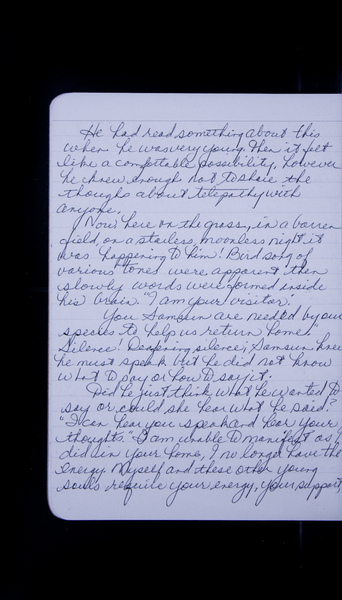 He had read something about this
when he was very young. Then it felt
like a comfortable possibility, however
he knew enough not to share the
thoughts about telepathy with
anyone.
Now here on the grass, in a barren
field, on a starless, moonless night it
was happening to him! Bird song of
various tones were apparent then
slowly words were formed inside
his brain. "I am your visitor.
You Samsun are needed by our
species to help us return home."
Silence! Deafening silence; Samsun knew
he must speak but he did not know
what to say or how to say it.
Did he just think what he wanted to
say or could she hear what he said?
"I can hear you speak and hear your
thoughts." "I am unable to manifest as I
did in your home, I no longer have the
energy. Myself and these other young
souls require your energy, your support,